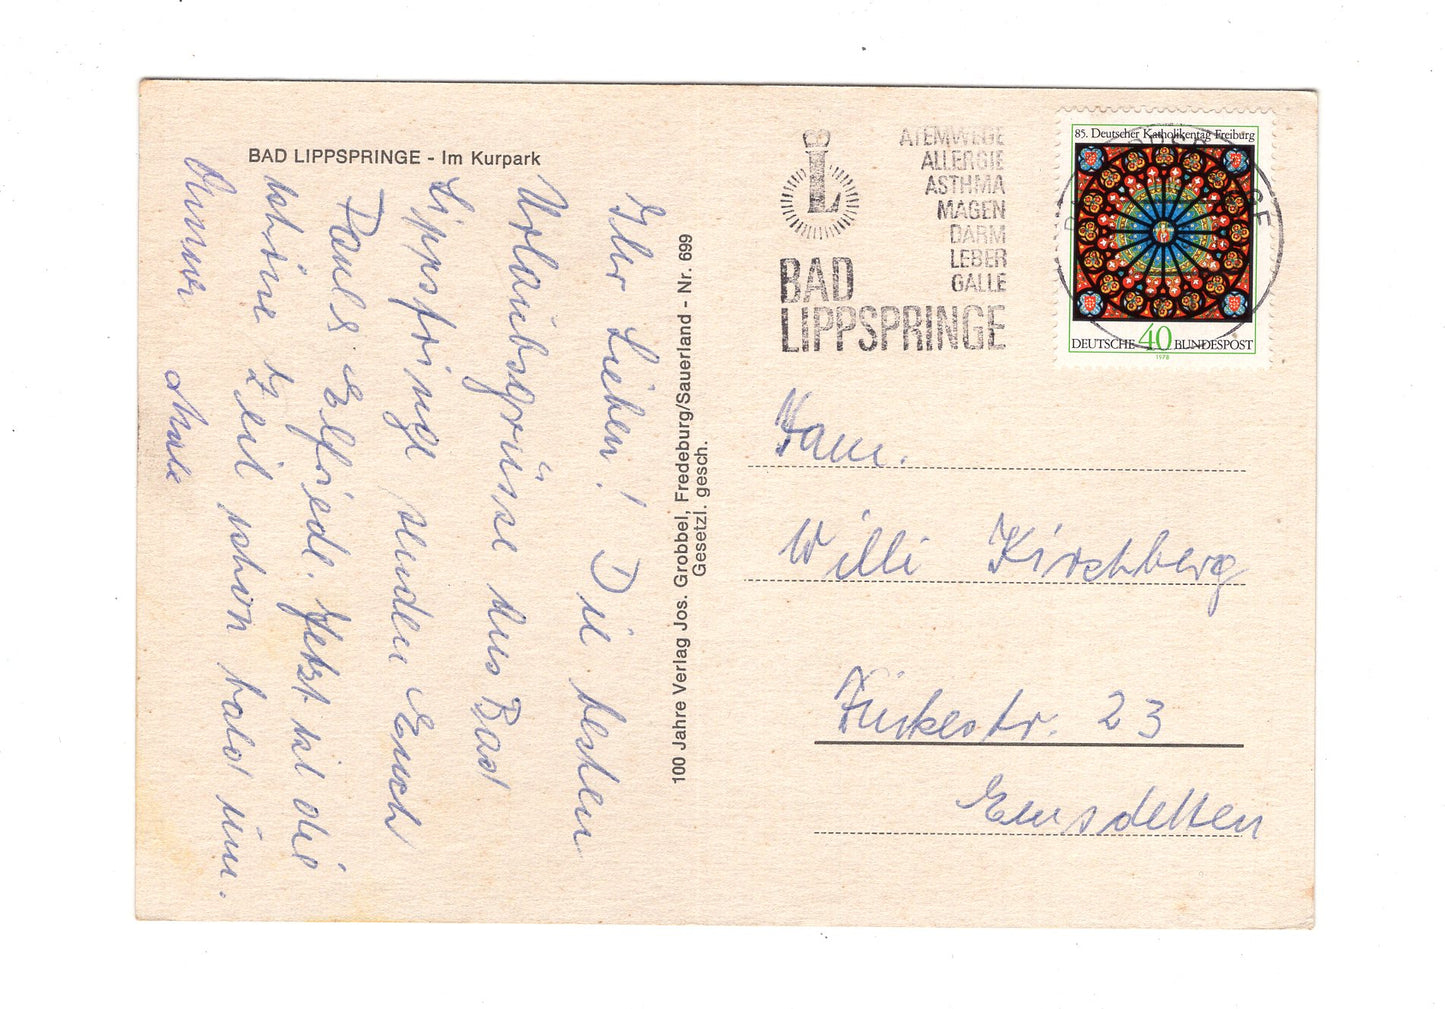 BAD LIPPSPRINGE - Im Kurpark
Ihr Lieben! Die besten
Urlaubsgrüsse aus Bad
Lippspringe senden Euch
Pauls Elfriede. Jetzt ist die
schöne Zeit schon bald um.
100 Jahre Verlag Jos. Grobbel, Fredeburg/Sauerland - Nr. 699
Gesetzl. gesch.
L
ATEMWEGE
ALLERGIE
ASTHMA
MAGEN
DARM
LEBER
GALLE
BAD
LIPPSPRINGE
85. Deutscher Katholikentag Freiburg
DEUTSCHE 40 BUNDESPOST
1978
Fam.
Willi Kirschberg
23
Emsdetten